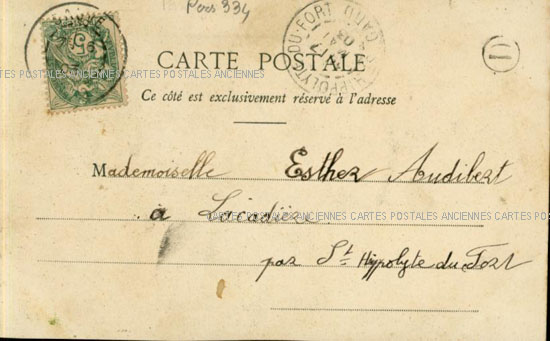 Pers 334
CARTE POSTALE
Ce côté est exclusivement réservé à l'adresse
CARTES POSTALES ANCIENNES CARTES POSTALES ANCIENNES
Mademoiselle Esther Audibert
à Lacadière
CARTES POSTALES ANCIENNES CARTES POSTALES ANCIENNES CARTES POSTALES
par St Hippolyte du Fort
DU-FORT
GARD